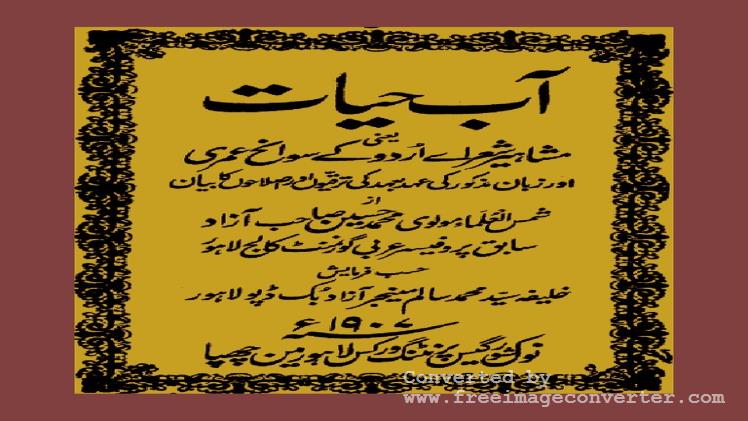 آب حیات
یعنی
مشاہیر شعراے اردو کے سوانح عمری
اور زبان مذکور کی عہد بعہد کی ترقیوں اور اصلاحوں کا بیان
از
شمس العلماء مولوی محمد حسین صاحب آزاد
سابق پروفیسر عربی گورنمنٹ کالج لاہور
حسب فرمایش
خلیفہ سید محمد سالم مینیجر آزاد بک ڈپو لاہور
۱۹۰۷ء
نولکشور گیس پرنٹنگ ورکس لاہور مین چھپا
Converted by
www.freeimageconverter.com